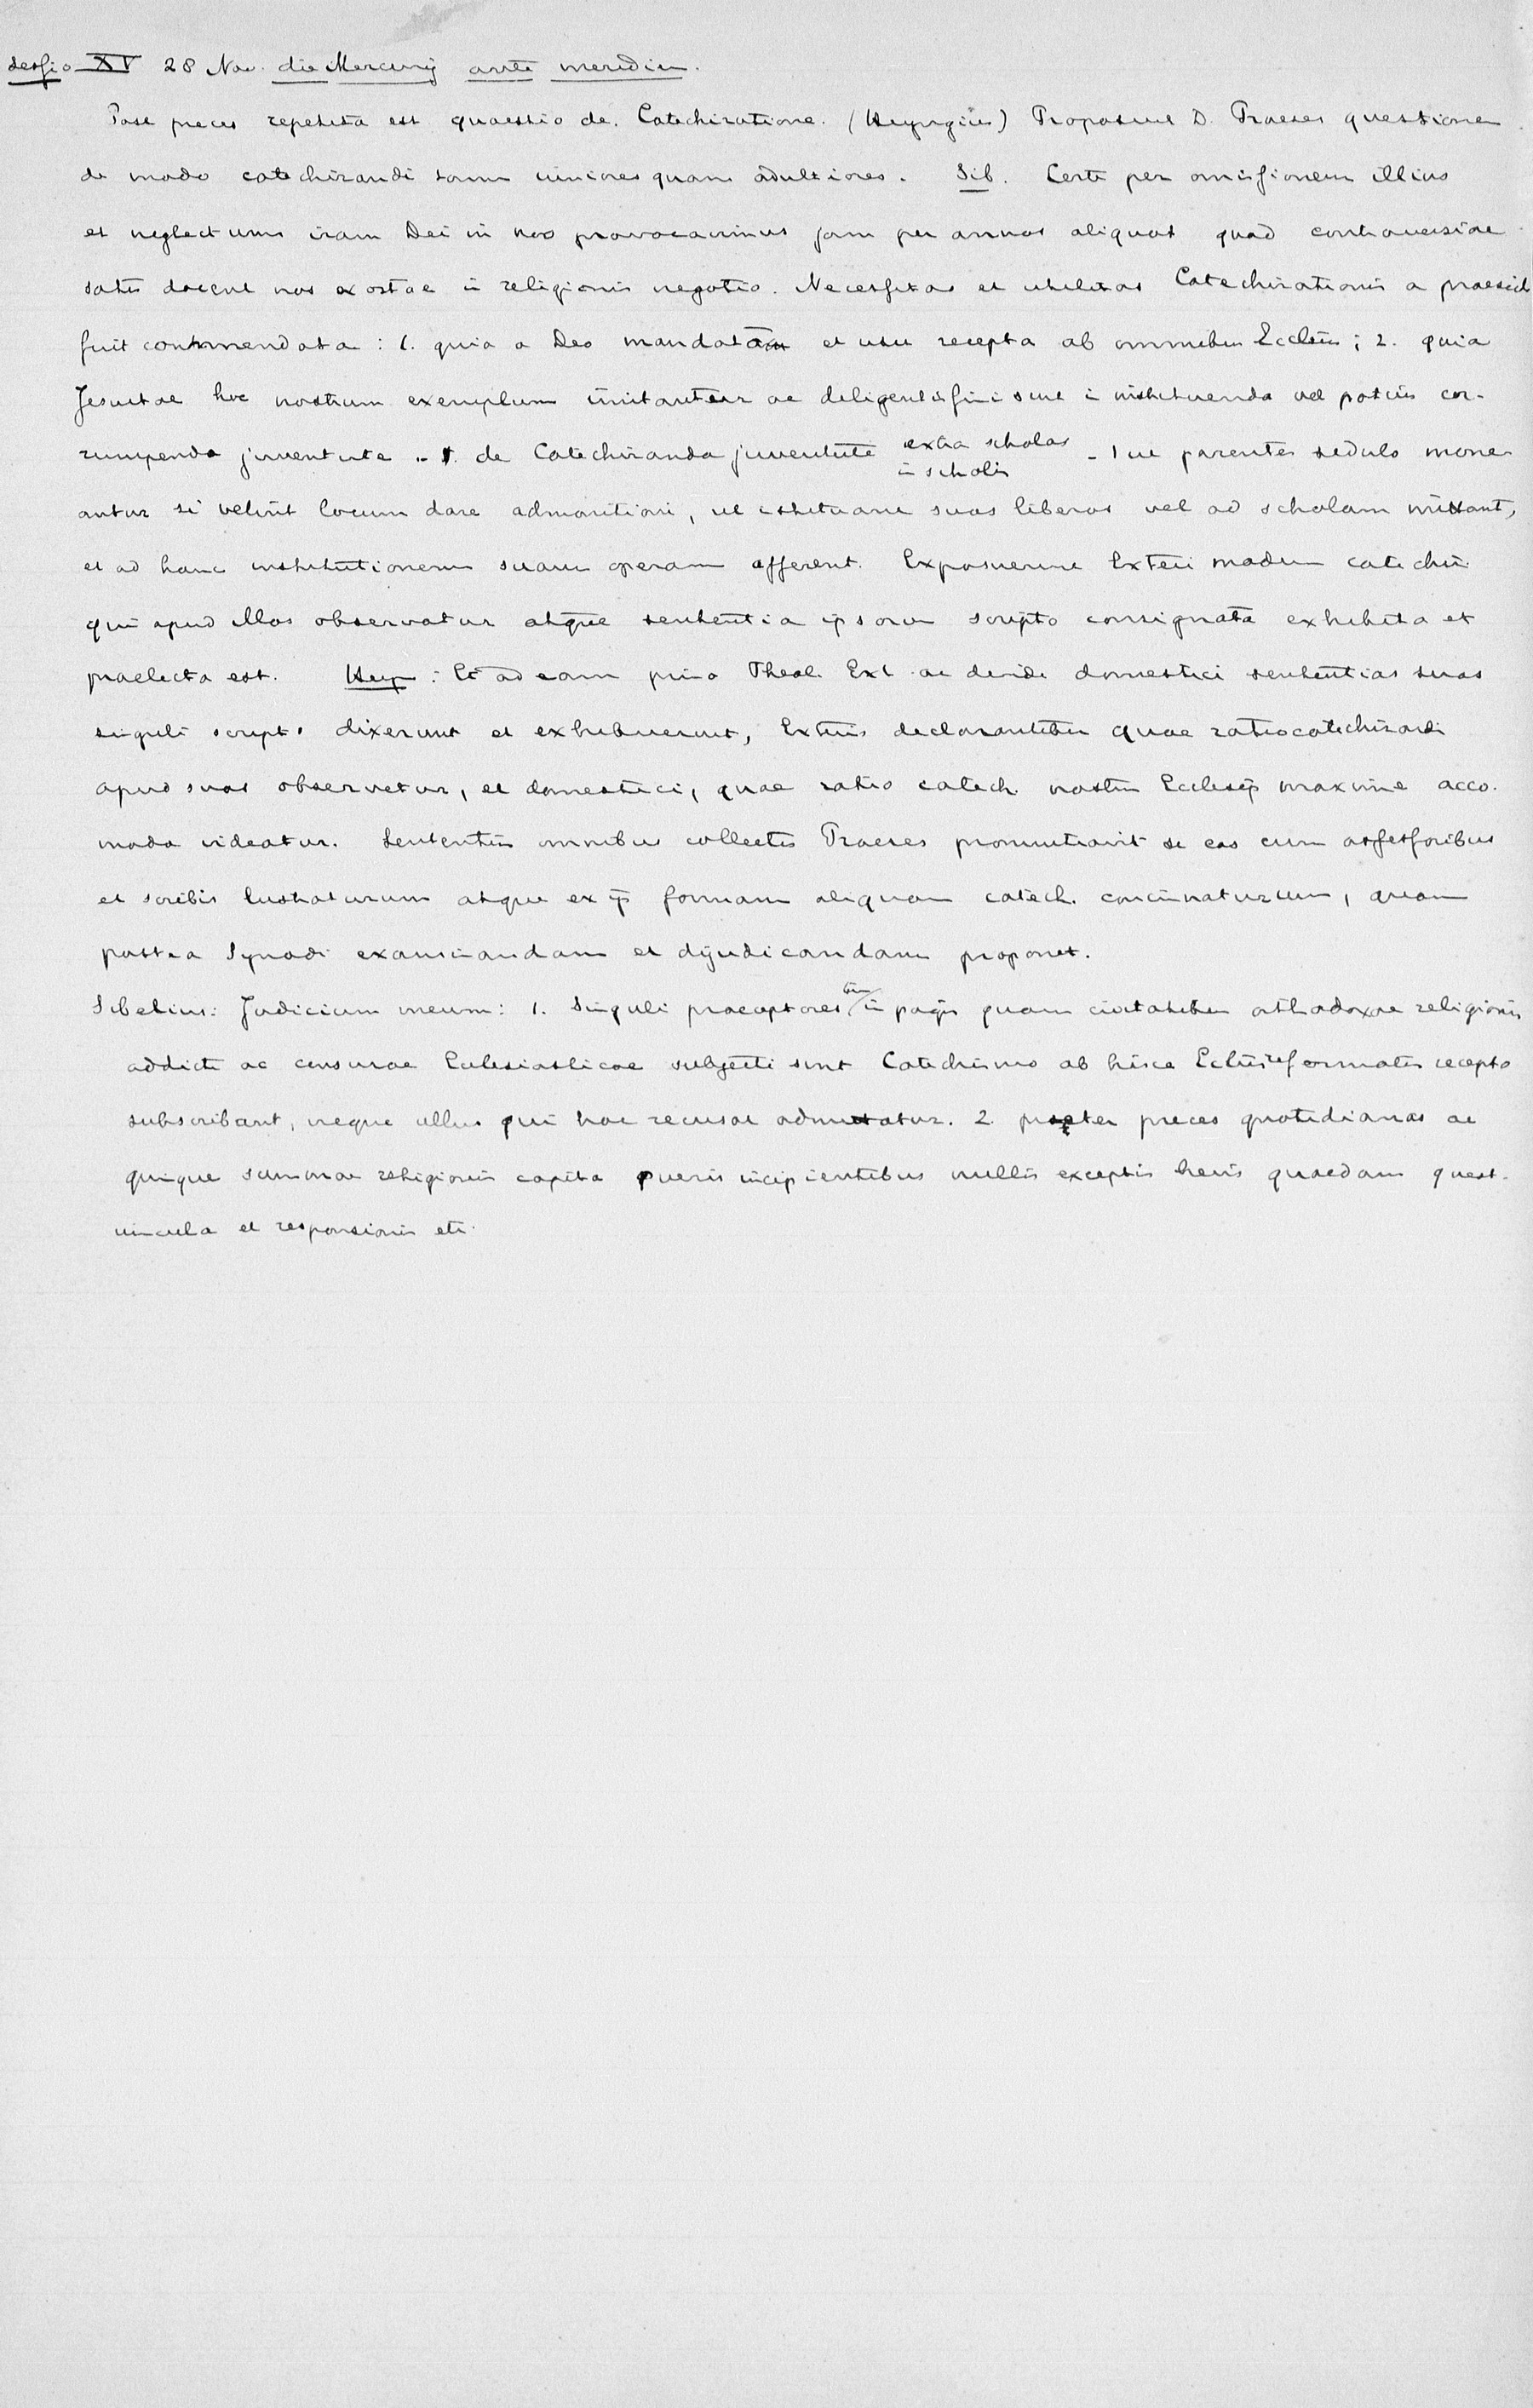 Sessio XV 28 Nov. die Mercurij ante meridiem.
Post preces repetita est quaestio de Catechizatione. (Heyngius) Proposuit D. Praeses questionem
de modo catechizandi tam iuniores quam adultiores. Sib. Certe per omissionem illius
et neglectum iram Dei in nos provocavimus jam per annos aliquot quod controversiae
satis docent nos exortae in religionis negotio. Necessitas et utilitas Catechizationis a praesid
fuit commendata: 1. quia a Deo mandata et usu recepta ab omnibus Eccliis; 2. quia
Jesuitae hoc nostrum exemplum imitantur ac diligentissimi sunt in instituenda vel potius cor-
rumpenda juventute .. 1. de Catechizanda juventute extra scholas in scholis - 1 ut parentes sedulo mone
antur si velint locum dare admonitioni, ut instituant suos liberos vel ad scholam mittant,
et ad hanc institutionem suam operam afferent. Exposuerunt Exteri modum catechis
qui apud illos observatur atque sententia ipsorum scripto consignata exhibita et
praelecta est. Hey : Et ad eam primo Theol. Ext. ac deinde domestici sententias suas
singuli scripto dixerunt et exhibuerunt, Exteris declarantibus quae ratio catechizandi
apud suos observetur, et domestici, quae ratio catech. nostris Ecclesijs maxime acco-
moda videatur. Sententiis omnibus collectis Praeses pronuntiavit se eas cum assessoribus
et scribis lustraturum atque ex ijs formam aliquam catech. concinnaturum, quam
postea Synodi examinandam et dijudicandam proponet.
Sibelius: Judicium meum: 1. Singuli praeceptores tam in pagis quam civitatibus orthodoxae religionis
addicti ac censurae Ecclesiasticae subjecti sint Catechismo ab hisce Ecliis reformatis recepto
subscribant, neque ullus qui hoc recusat admittatur. 2. praeter preces quotidianas ac
quinque summae religionis capita pueris incipientibus nullis exceptis brevis quaedam quest-
iuncula et responsionis etc.